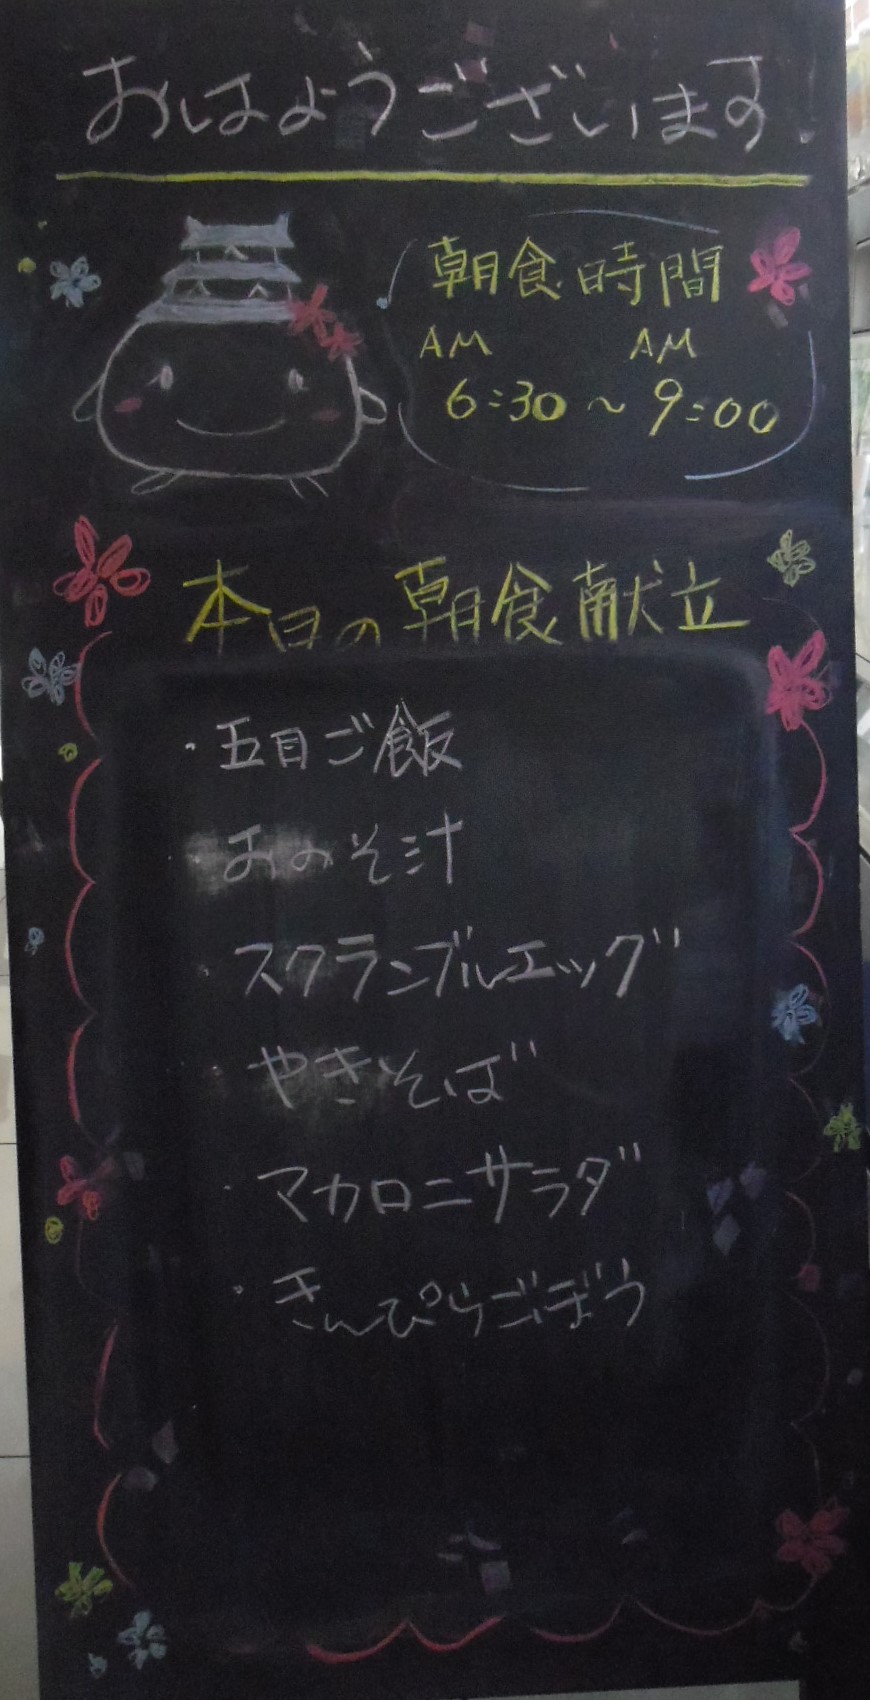 おはようございます!
朝食時間
AM AM
6:30〜9:00
本日の朝食献立
・五目ご飯
・おみそ汁
・スクランブルエッグ
・やきそば
・マカロニサラダ
・きんぴらごぼう